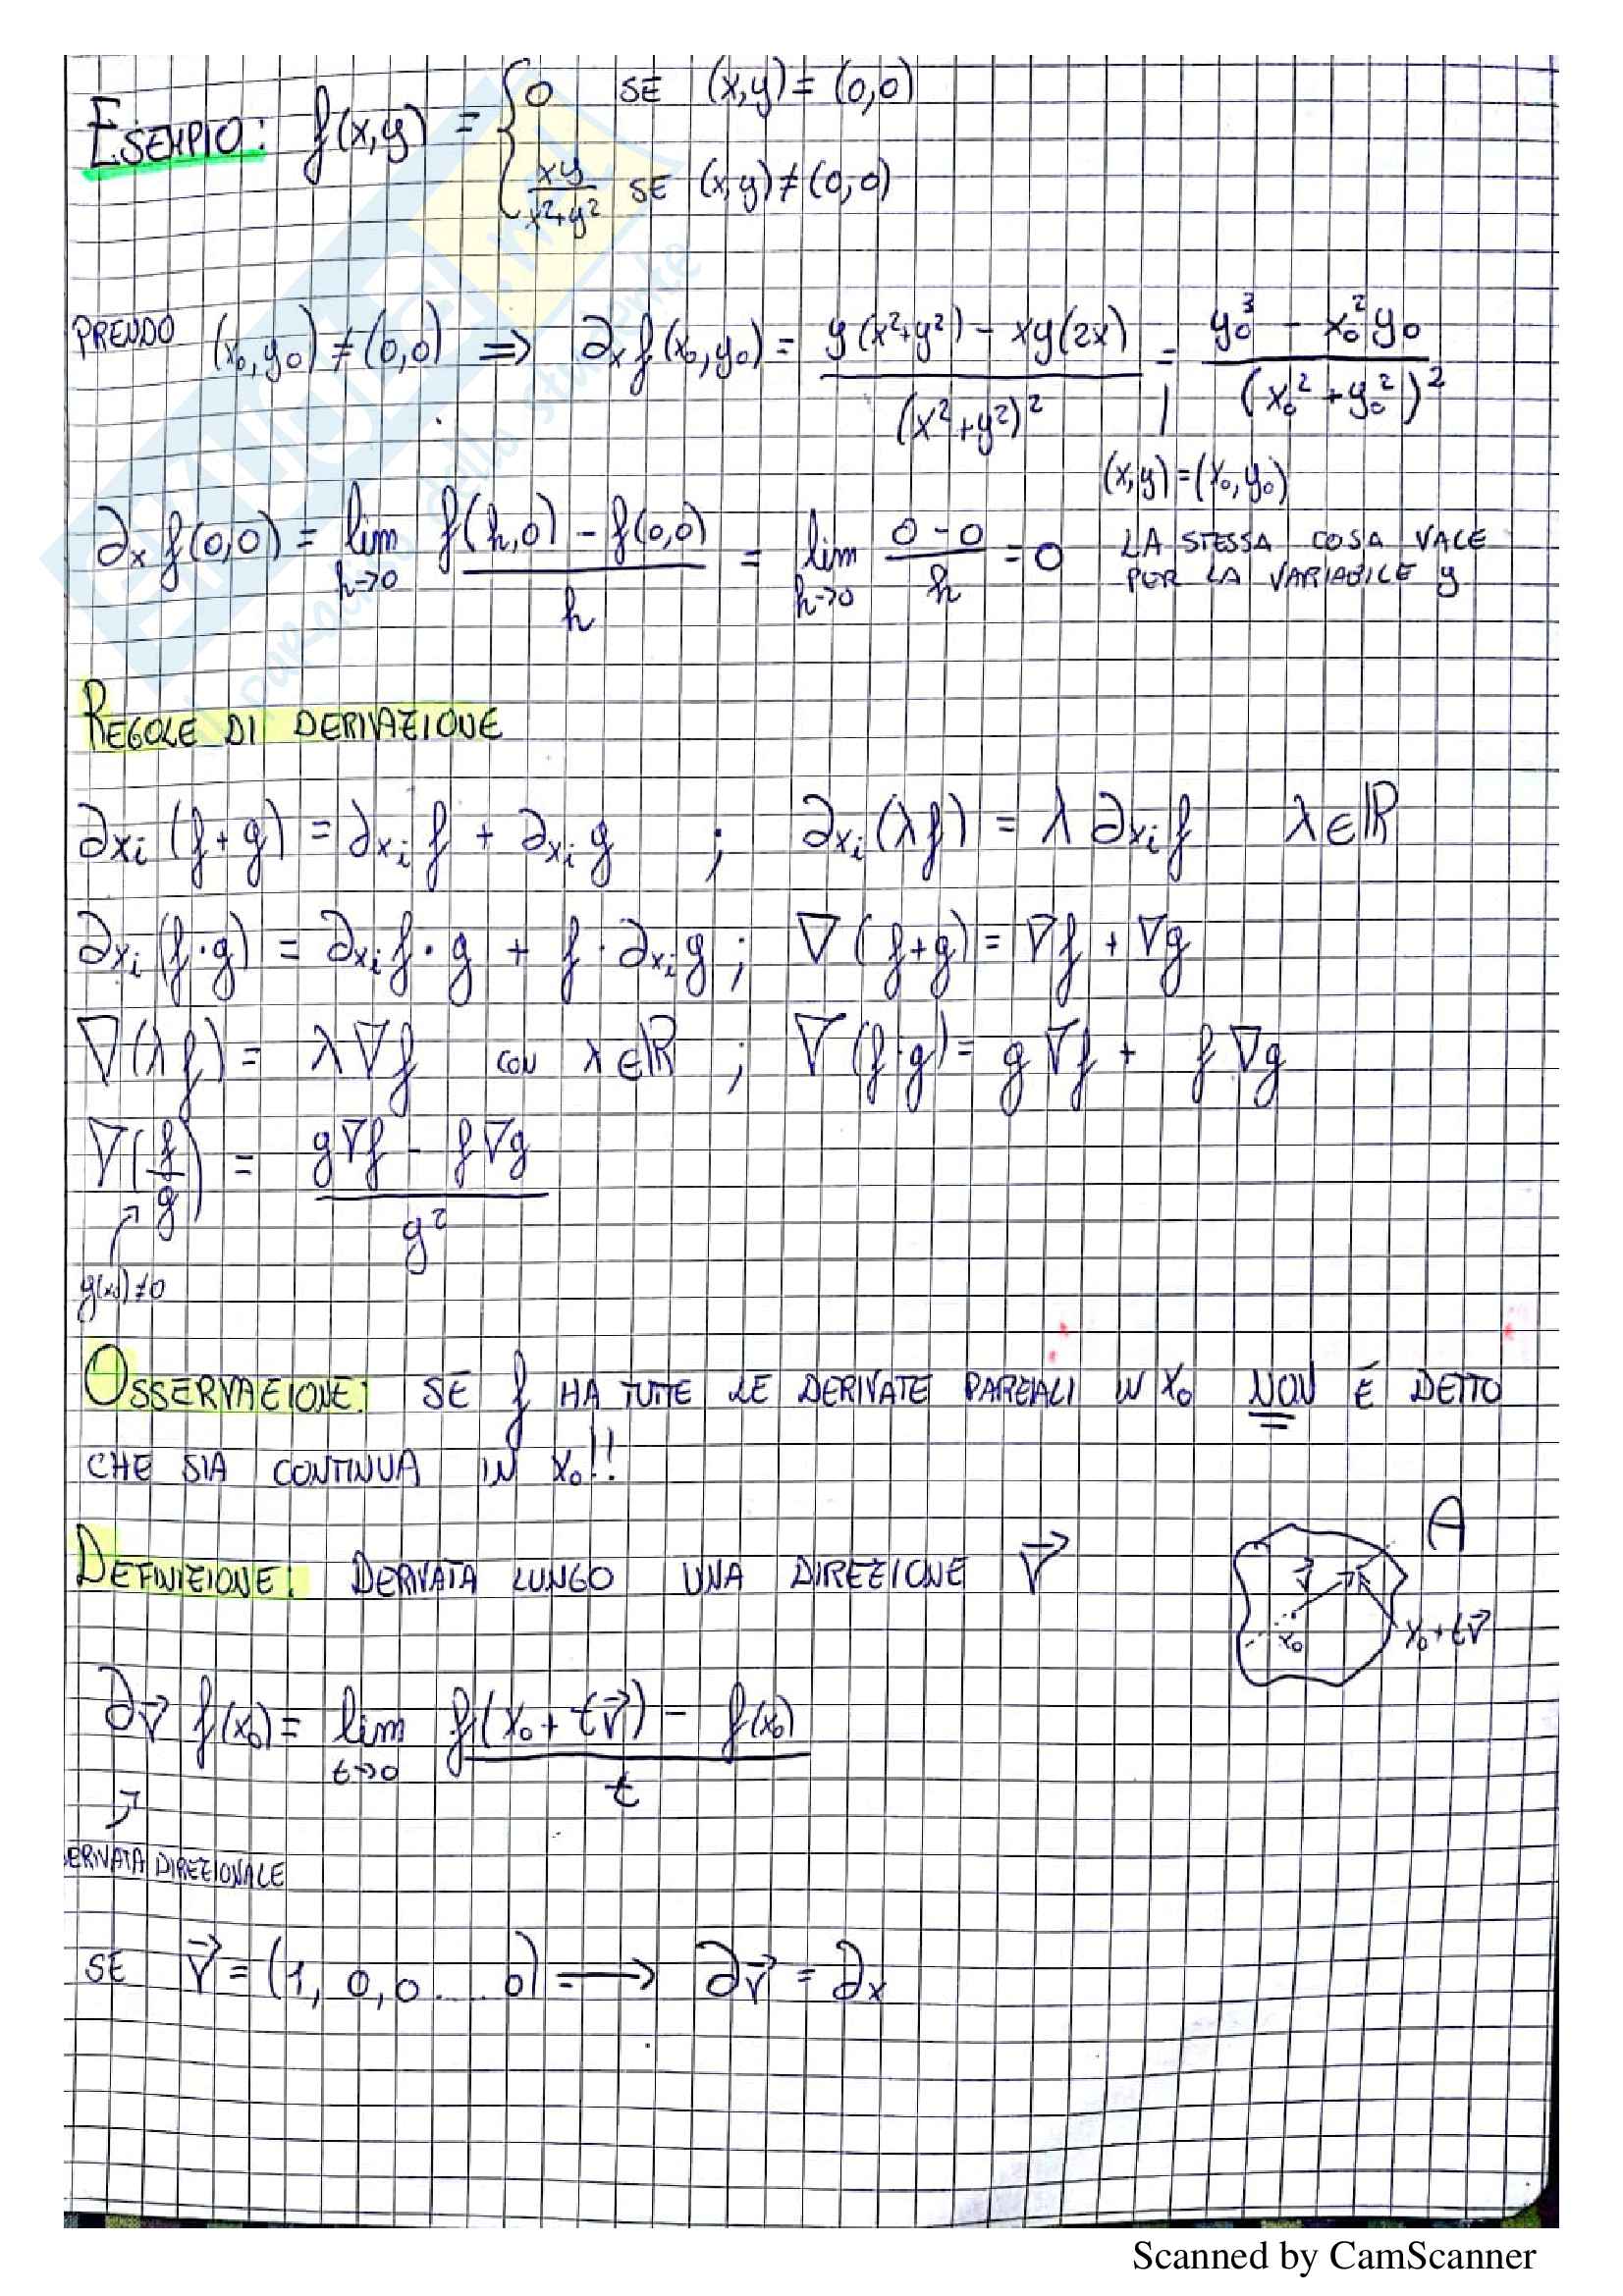 ESEMPIO: f(x,y) = { 0 SE (x,y) = (0,0)
xy / x²+y² SE (x,y) ≠ (0,0)
PRENDO (x₀,y₀) ≠ (0,0) ⇒ ∂x f(x₀,y₀) = y(x²+y²) - xy(2x) / (x²+y²)² | = y₀³ - x₀² y₀ / (x₀² + y₀²)²
(x,y) = (x₀,y₀)
∂x f(0,0) = lim h→0 f(h,0) - f(0,0) / h = lim h→0 0-0 / h = 0 LA STESSA COSA VALE
PER LA VARIABILE y
REGOLE DI DERIVAZIONE
∂xᵢ (f+g) = ∂xᵢ f + ∂xᵢ g ; ∂xᵢ (λf) = λ ∂xᵢ f λ∈ℝ
∂xᵢ (f·g) = ∂xᵢ f · g + f · ∂xᵢ g ; ∇(f+g) = ∇f + ∇g
∇(λf) = λ∇f con λ∈ℝ ; ∇(f·g) = g∇f + f∇g
∇(f/g) = g∇f - f∇g / g²
g(x₀) ≠ 0
OSSERVAZIONE: SE f HA TUTTE LE DERIVATE PARZIALI IN x₀ NON È DETTO
CHE SIA CONTINUA IN x₀!!
DEFINIZIONE: DERIVATA LUNGO UNA DIREZIONE v⃗
A
v⃗
x₀
x₀ + tv⃗
∂v⃗ f(x₀) = lim t→0 f(x₀ + tv⃗) - f(x₀) / t
ERIVATA DIREZIONALE
SE v⃗ = (1, 0, 0 .... 0) ⟹ ∂v⃗ = ∂x
Scanned by CamScanner